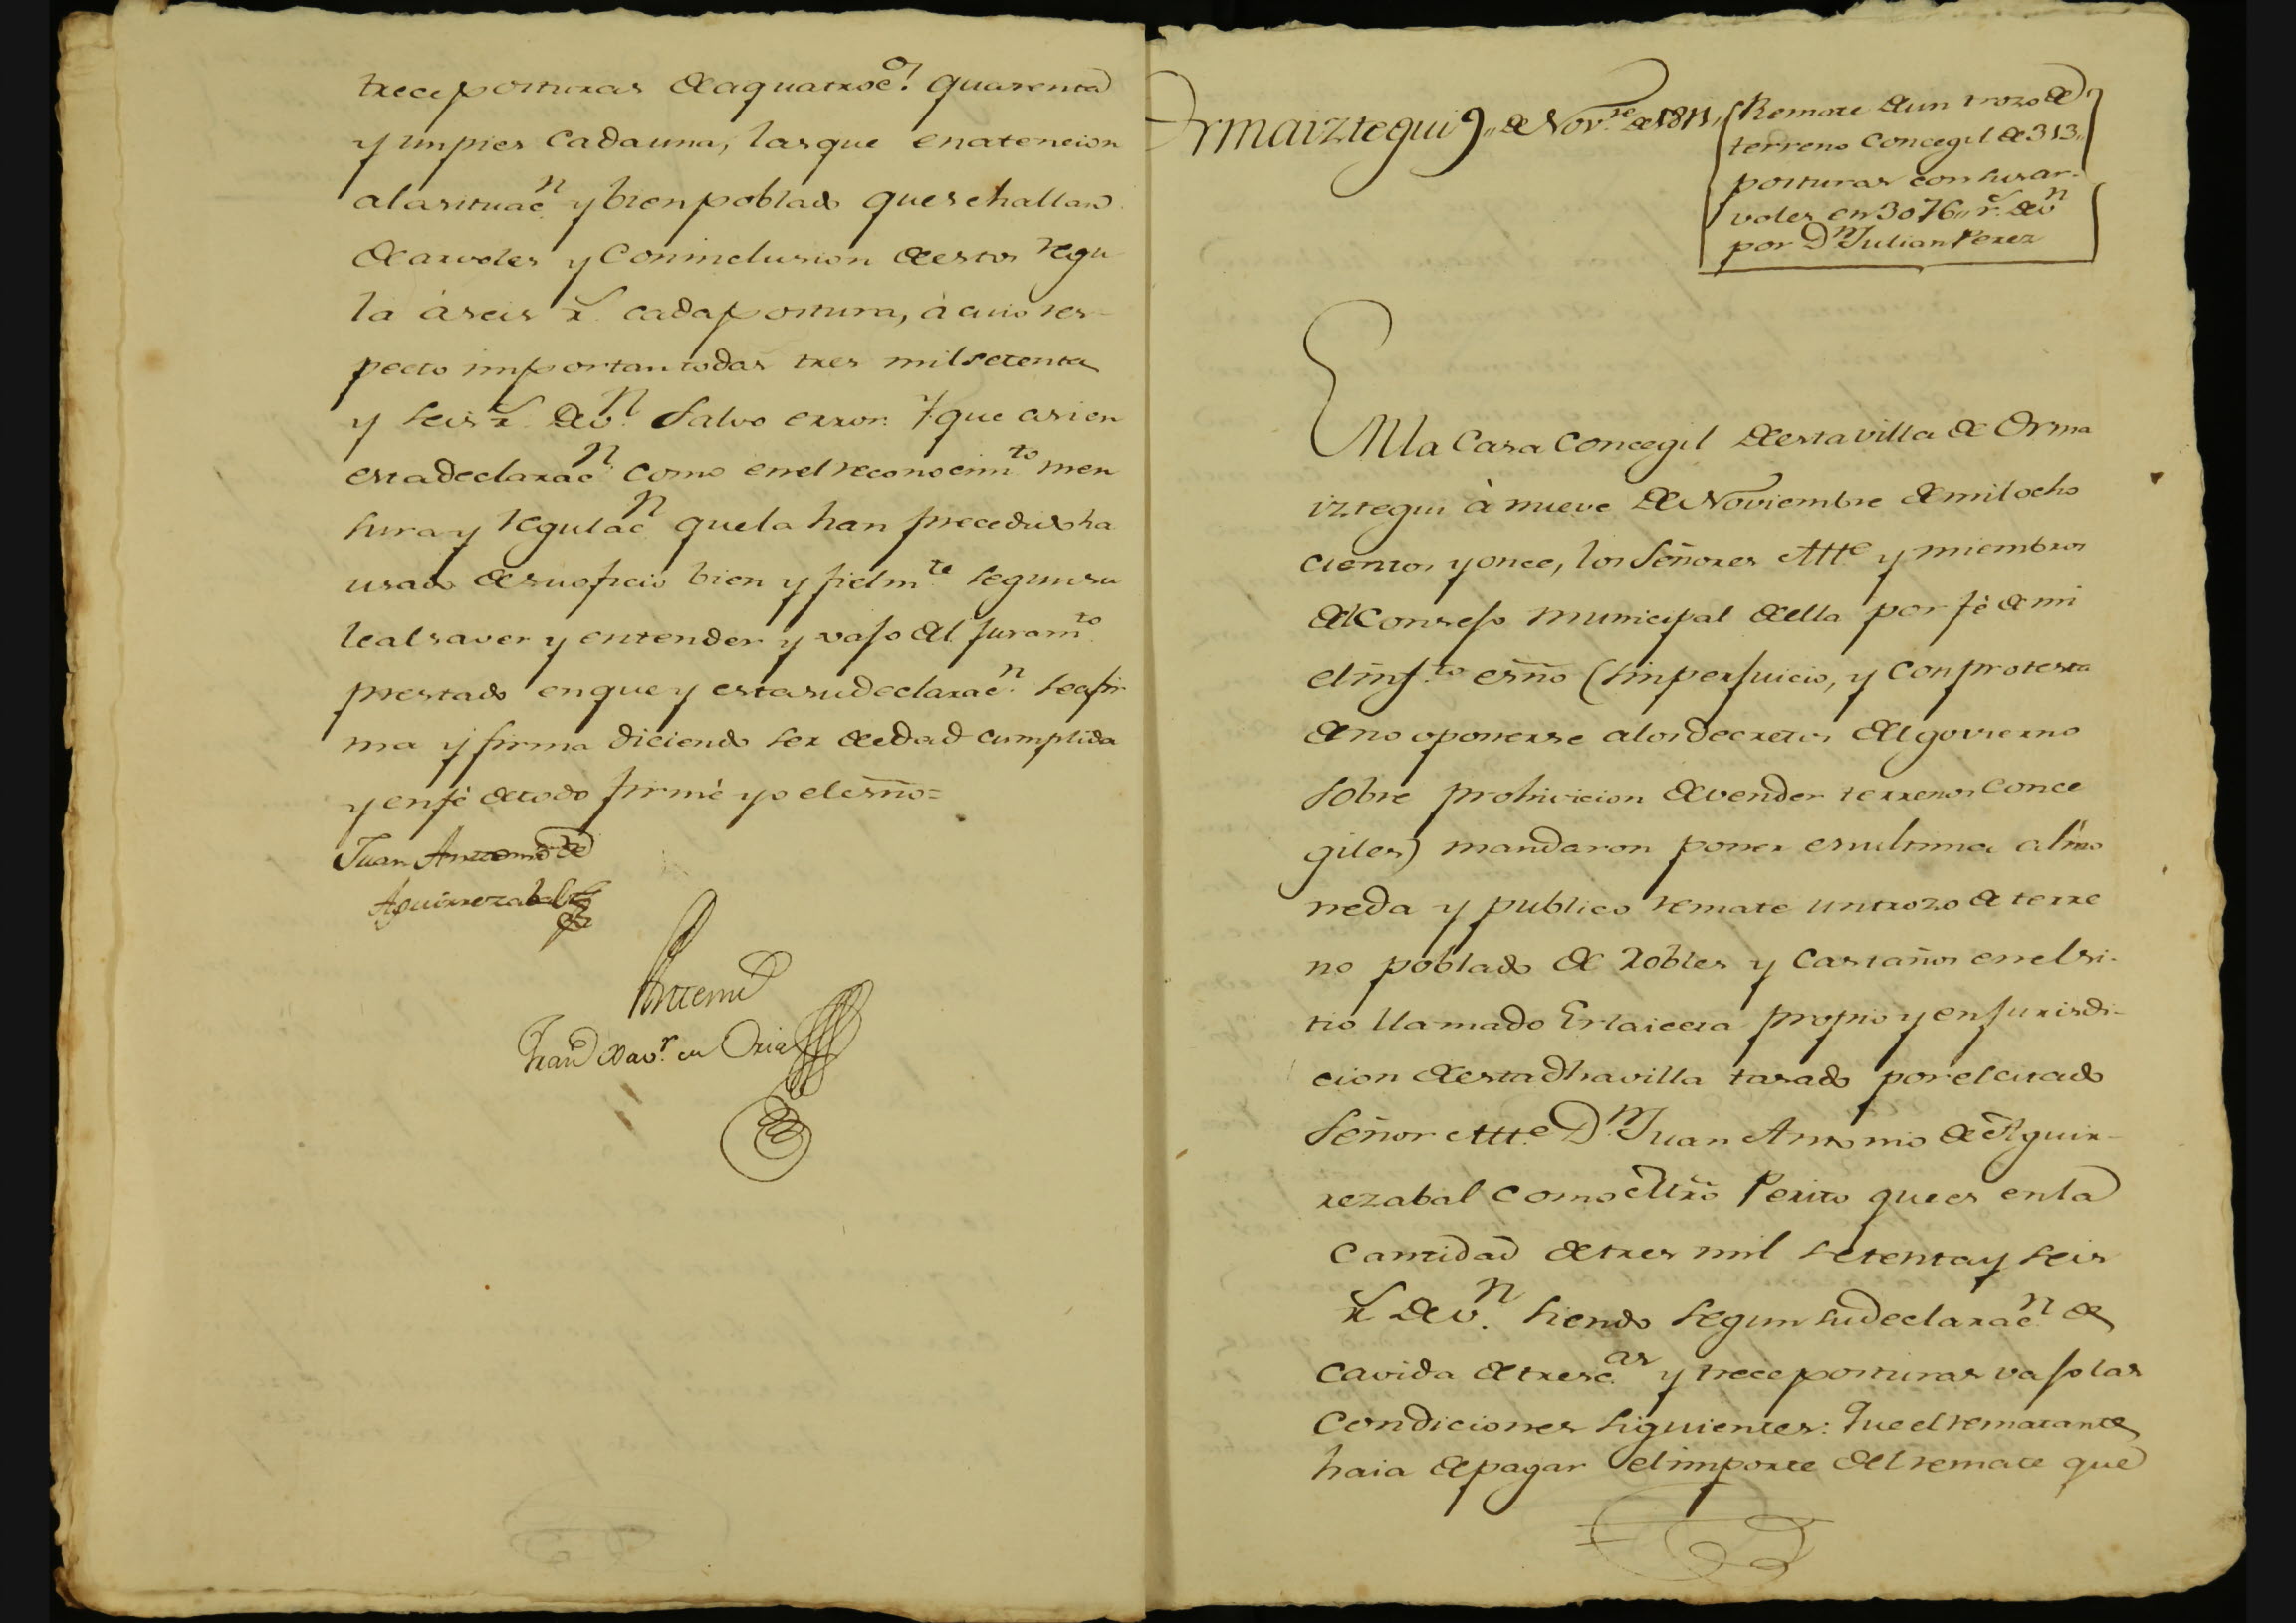 trece posturas de a quatroc.os quarenta
y un pies cada una, las que en atencion
a la situac.n y bien poblado que se hallan
de arvoles y con inclusion de estos regu
la à seis r.s cada postura, à cuio res-
pecto importan todas tres mil setenta
y seis r.s de v.n salvo error. Y que asi en
esta declarac.n como en el reconocim.to men
sura y regulac.n que la han precedido ha
usado de su oficio bien y fielm.te segun su
leal saver y entender y vajo del juram.to
prestado en que y esta su declarac.n se afir
ma y firma diciendo ser de edad cumplida
y en fè de todo firmè yo el esño=
Juan Antonio de
Aguirrezabal
Antemi
Fran.co Xav.r de Oria
Ormaiztegui 9,, de Nov.re de 1811,,
Remate de un trozo de
terreno Concegil de 313,,
posturas con sus ar-
voles en 3076,, r.s de v.n
por D.n Julian Perez
En la Casa Concegil de esta villa de Orma
iztegui à nueve de Noviembre de mil ocho
cientos y once, los Señores Alt.e y miembros
del Consejo municipal de ella por fè de mi
el inf.to esño (sin perjuicio, y con protesta
de no oponerse a los decretos del govierno
sobre prohivicion de vender terrenos Conce
giles) mandaron poner en ultima almo
neda y publico remate un trozo de terre
no poblado de Robles y Castaños en el si-
tio llamado Erlaicera propio y en jurisdi-
cion de esta dha villa tasado por el citado
Señor Alt.e D.n Juan Antonio de Aguir-
rezabal como Mro Perito que es en la
Cantidad de tres mil setenta y seis
r.s de v.n siendo segun su declarac.n de
cavida de tresc.as y trece posturas vajo las
Condiciones siguientes: Que el rematante
haia de pagar el importe del remate que